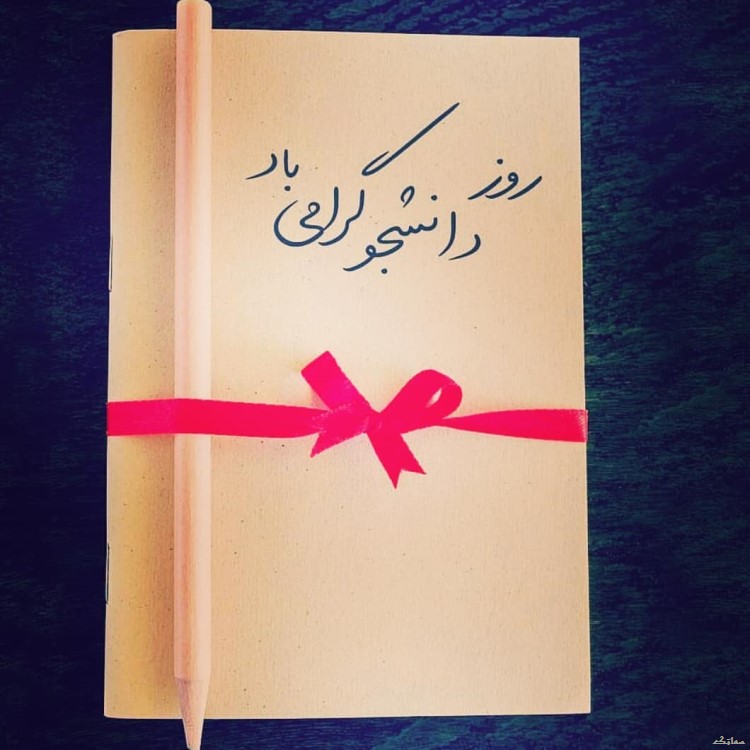 روز
دانشجو گرامی
باد